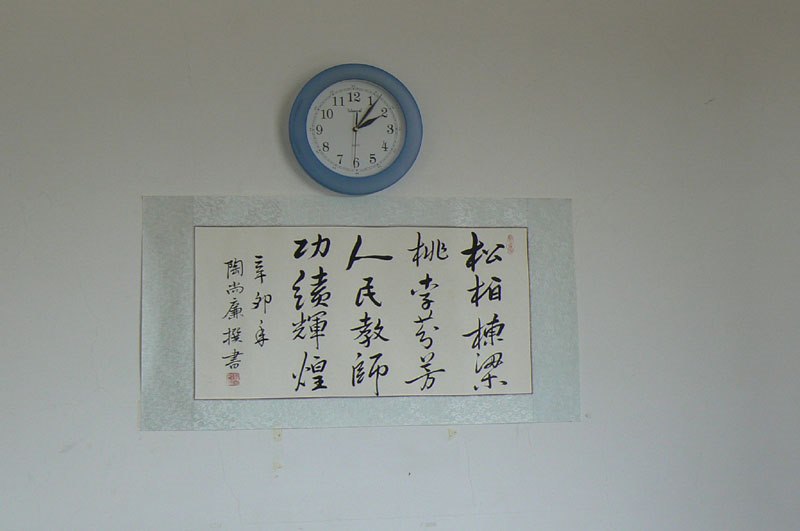 12
1
2
3
4
5
6
7
8
9
10
11
松柏棟梁
桃李芬芳
人民教師
功績輝煌
辛卯年
陶尚廉撰書